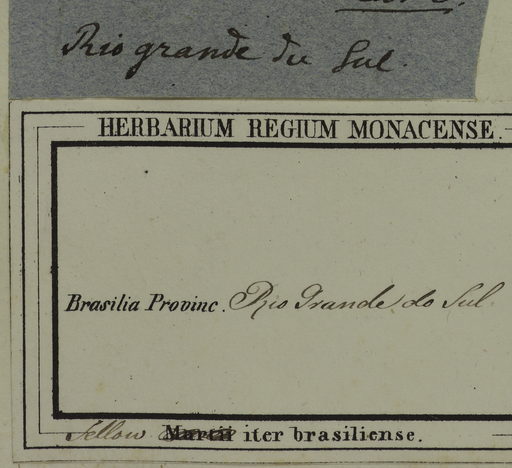 Rio grande du Sul.
HERBARIUM REGIUM MONACENSE.
Brasilia Provinc. Rio Grande do Sul
Sellow Martii iter brasiliense.